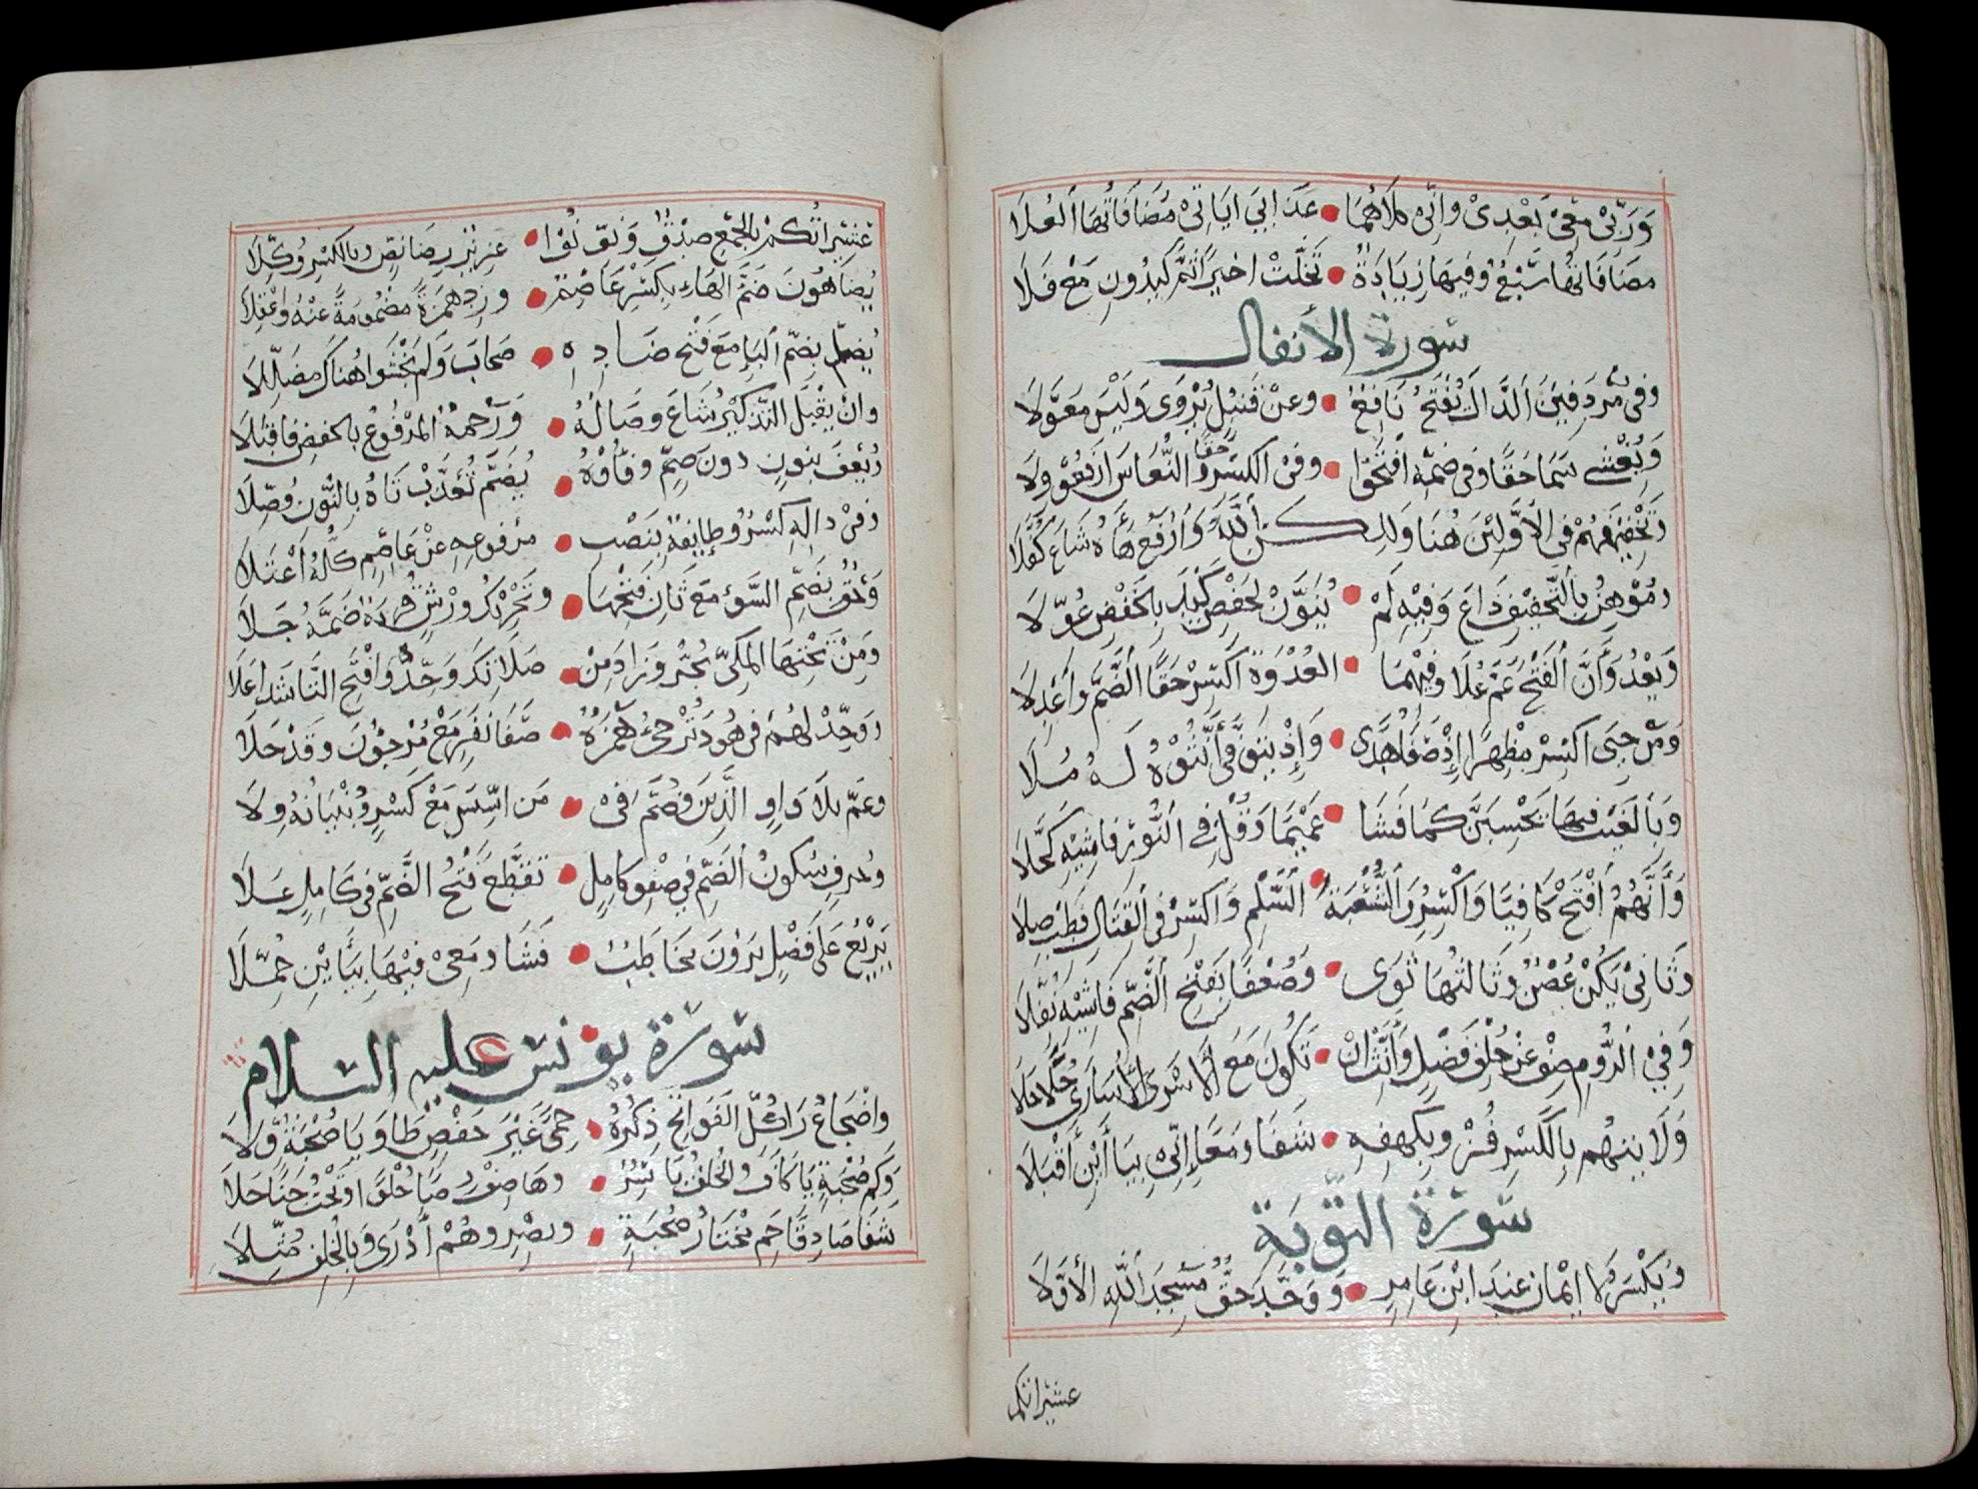 وَرَبِّىْ مَعِىْ بَعْدِىْ وَاِنِّى كِلَاهُمَا • عَذَابِيَ ايَاتِىْ مُضَافَاتُهَا اَلْعُلَا
مضَافَاتُهَا سَبْعٌ وَفِيهَا زِيَادَةٌ • تَخَلَّتْ اخِيرًا ثُمَّ كِيدُونِ مَعْ فَلَا
سورة الأنفال
وَفِى مُرْدِفِينَ اَلدَّالَ يَفْتَحُ نَافِعٌ • وعَنْ قُنْبُلٍ يُرْوَى وَلَيْسَ مُعَوَّلَا
وَيُغْشِى سَمَا حَقًّا وَفِى ضَمِّهِ افْتَحُوا • وَفِى الْكَسْرِ حَقًّا وَالنُّعَاسَ ارْفَعُوْا وِلَا
وَتَخْفِيفُهُمْ فِي الأَوَّلَيْنِ هُنَا وَلكِنِ اَللَّهُ وَاَرْفَعْ هَاءَهُ شَاعَ كُفَّلَا
ومُوْهِنُ بِاَلتَّخْفِيفِ ذَاعَ وَفِيْهِ لَمْ • يُنَوَّنْ لِحَفْصٍ كَيْدَ بِاَلْخَفْضِ عَوَّلَا
وَبَعْدُ وَأَنَّ اَلْفَتْحُ عَمَّ عُلَا وَفِيْهِمَا • الْعُدْوَةِ اَكْسِرْ حَقًّا اَلضَّمَّ وَاَعْدِلَا
وَمَنْ حَيِىَ اَكْسِرْ مُظْهِرًا إِذْ صَفَا هُدًى • وَاِذْ يَتَوَفَّى أَنِّثُوْهُ لَهُ مُلَا
وَبِاَلْغَيْبِ فِيهَا تَحْسَبَنَّ كَمَا فَشَا • عَمِيْمًا وَقُلْ فِى اَلنُّوْرِ فَاشِيْهِ كَحَّلَا
وَأَنَّهُمُ اَفْتَحْ كَافِيًا وَاكْسِرُوا لِشُعْبَةَ • السَّلْمِ وَاَكْسِرْ فِى اَلْقِتَالِ فَطِبْ صِلَا
وَثَانِىْ يَكُنْ غُصْنٌ وَثَالِثُهَا ثَوَى • وَضُعْفًا بِفَتْحِ اَلضَّمِّ فَاشِيْهِ نُفِّلَا
وَفِيْ اَلرُّومِ صِفْ عَنْ خُلْفِ فَصْلٍ وَأَنِّثْ اَنْ • تَكُوْنَ مَعَ اَلْاَسْرَى الأُسَارَى حُلًا حَلَا
وَلَايَتِهُم بِاَلْكَسْرِ فُزْ وَبِكَهْفِهِ • شَفَا وَمَعًا إِنِّىْ بِيَاأَيْنِ أَقْبَلَا
سُورَةُ التّوبَة
وَيُكْسَرُ لَا اِيْمَانَ عِنْدَ ابْنِ عَامِرٍ • وَوَحَّدَ حَقٌّ مَسْجِدَ اَللَّهِ الأَوَّلَا
عشيراتكم
عَشِيْرَاتُكُمْ بِالْجَمْعِ صِدْقٌ وَنَوِّنُوْا • عُزَيْرٌ رِضَا نَصٍّ وَبِالْكَسْرِ وُكِّلَا
يُضَاهُونَ ضَمَّ الْهَاءِ بِكَسْرِ عَاصِمٍ • وَزِدْ هَمْزَةً مَضْمُومَةً عَنْهُ وَاعْقِلَا
يُضَلُّ بِضَمِّ اَلْيَاءِ مَعْ فَتْحِ ضَادِهِ • صِحَابٌ وَلَمْ يَخْشَوا هُنَاكَ مُضَلِّلَا
وَاَنْ يُقْبَلَ التَّذْكِيْرُ شَاعَ وَصَالُهُ • وَرَحْمَةٌ الْمَرْفُوْعُ بِالْخَفْضِ فَاقْبَلَا
وَيُعْفَ بِنُونٍ دونَ ضَمٍّ وَفَاؤُهُ • يُضَمُّ تُعَذَّبْ تَاهُ بِالنُّونِ وُصِّلَا
وَفِىْ ذَالِهِ كَسْرٌ وَطَائِفَةٌ بِنَصْبِ • مَرْفُوْعِهِ عَنْ عَاصِمٍ كُلُّهُ اَعْتَلَا
وَحَقٌّ بِضَمِّ السَّوْءِ مَعْ ثَانِ فَتْحِهَا • وَتَحْرِيْكُ وَرْشٍ قُرْبَةٌ ضَمَّهُ جَلَا
وَمِنْ تَحْتِهَا الْمَكِىُّ يَجُرُّ وَزَادَ مِنْ • صَلَاتَكَ وَحِّدْ وَافْتَحِ التَّا شَذًا عَلَا
وَوَحِّدْ لَهُمْ فِى هُوْدَ تُرْجِئُ هَمْزُهُ • صَفَا نَفَرٍ مَعْ مُرْجَؤُنَ وَقَدْ حَلَا
وَعَمَّ بِلَا وَاوِ الَّذِيْنَ وَضُمَّ فِى • مَنَ اسَّسَ مَعْ كَسْرٍ وَبُنْيَانُهُ وِلَا
وَجُرْفٍ سُكُونُ اَلضَّمِّ فِي صَفْوِ كَامِلٍ • تَقَطَّعَ فَتْحُ الضَّمِّ فِى كَامِلٍ عَلَا
يَزِيْغُ عَلَى فَصْلٍ يَرَوْنَ مُخَاطَبٌ • فَشَا وَمَعِىْ فِيْهَا بِيَاأَيْنِ حُمِّلَا
سُورَة يونس عليه السلام
وَاضْجَاعُ رَا كُلِّ الْفَوَاتِحِ ذِكْرُهُ • حِمًى غَيْرَ حَفْصٍ طَا وَيَا صُحْبَةٌ وَلَا
وَكَمْ صُحْبَةٍ يَا كَافَ وَالْخُلْفُ يَاسِرٌ • وَهَا صِفْ رِضًا حُلْوًا وَتَحْتُ جَنًا حَلَا
شَفَا صَادِقًا حَم مُخْتَارُ صُحْبَةٍ • وَبَصْرٍ وَهُمْ أَدْرَى وَبِالْخُلْفِ مُثِّلَا